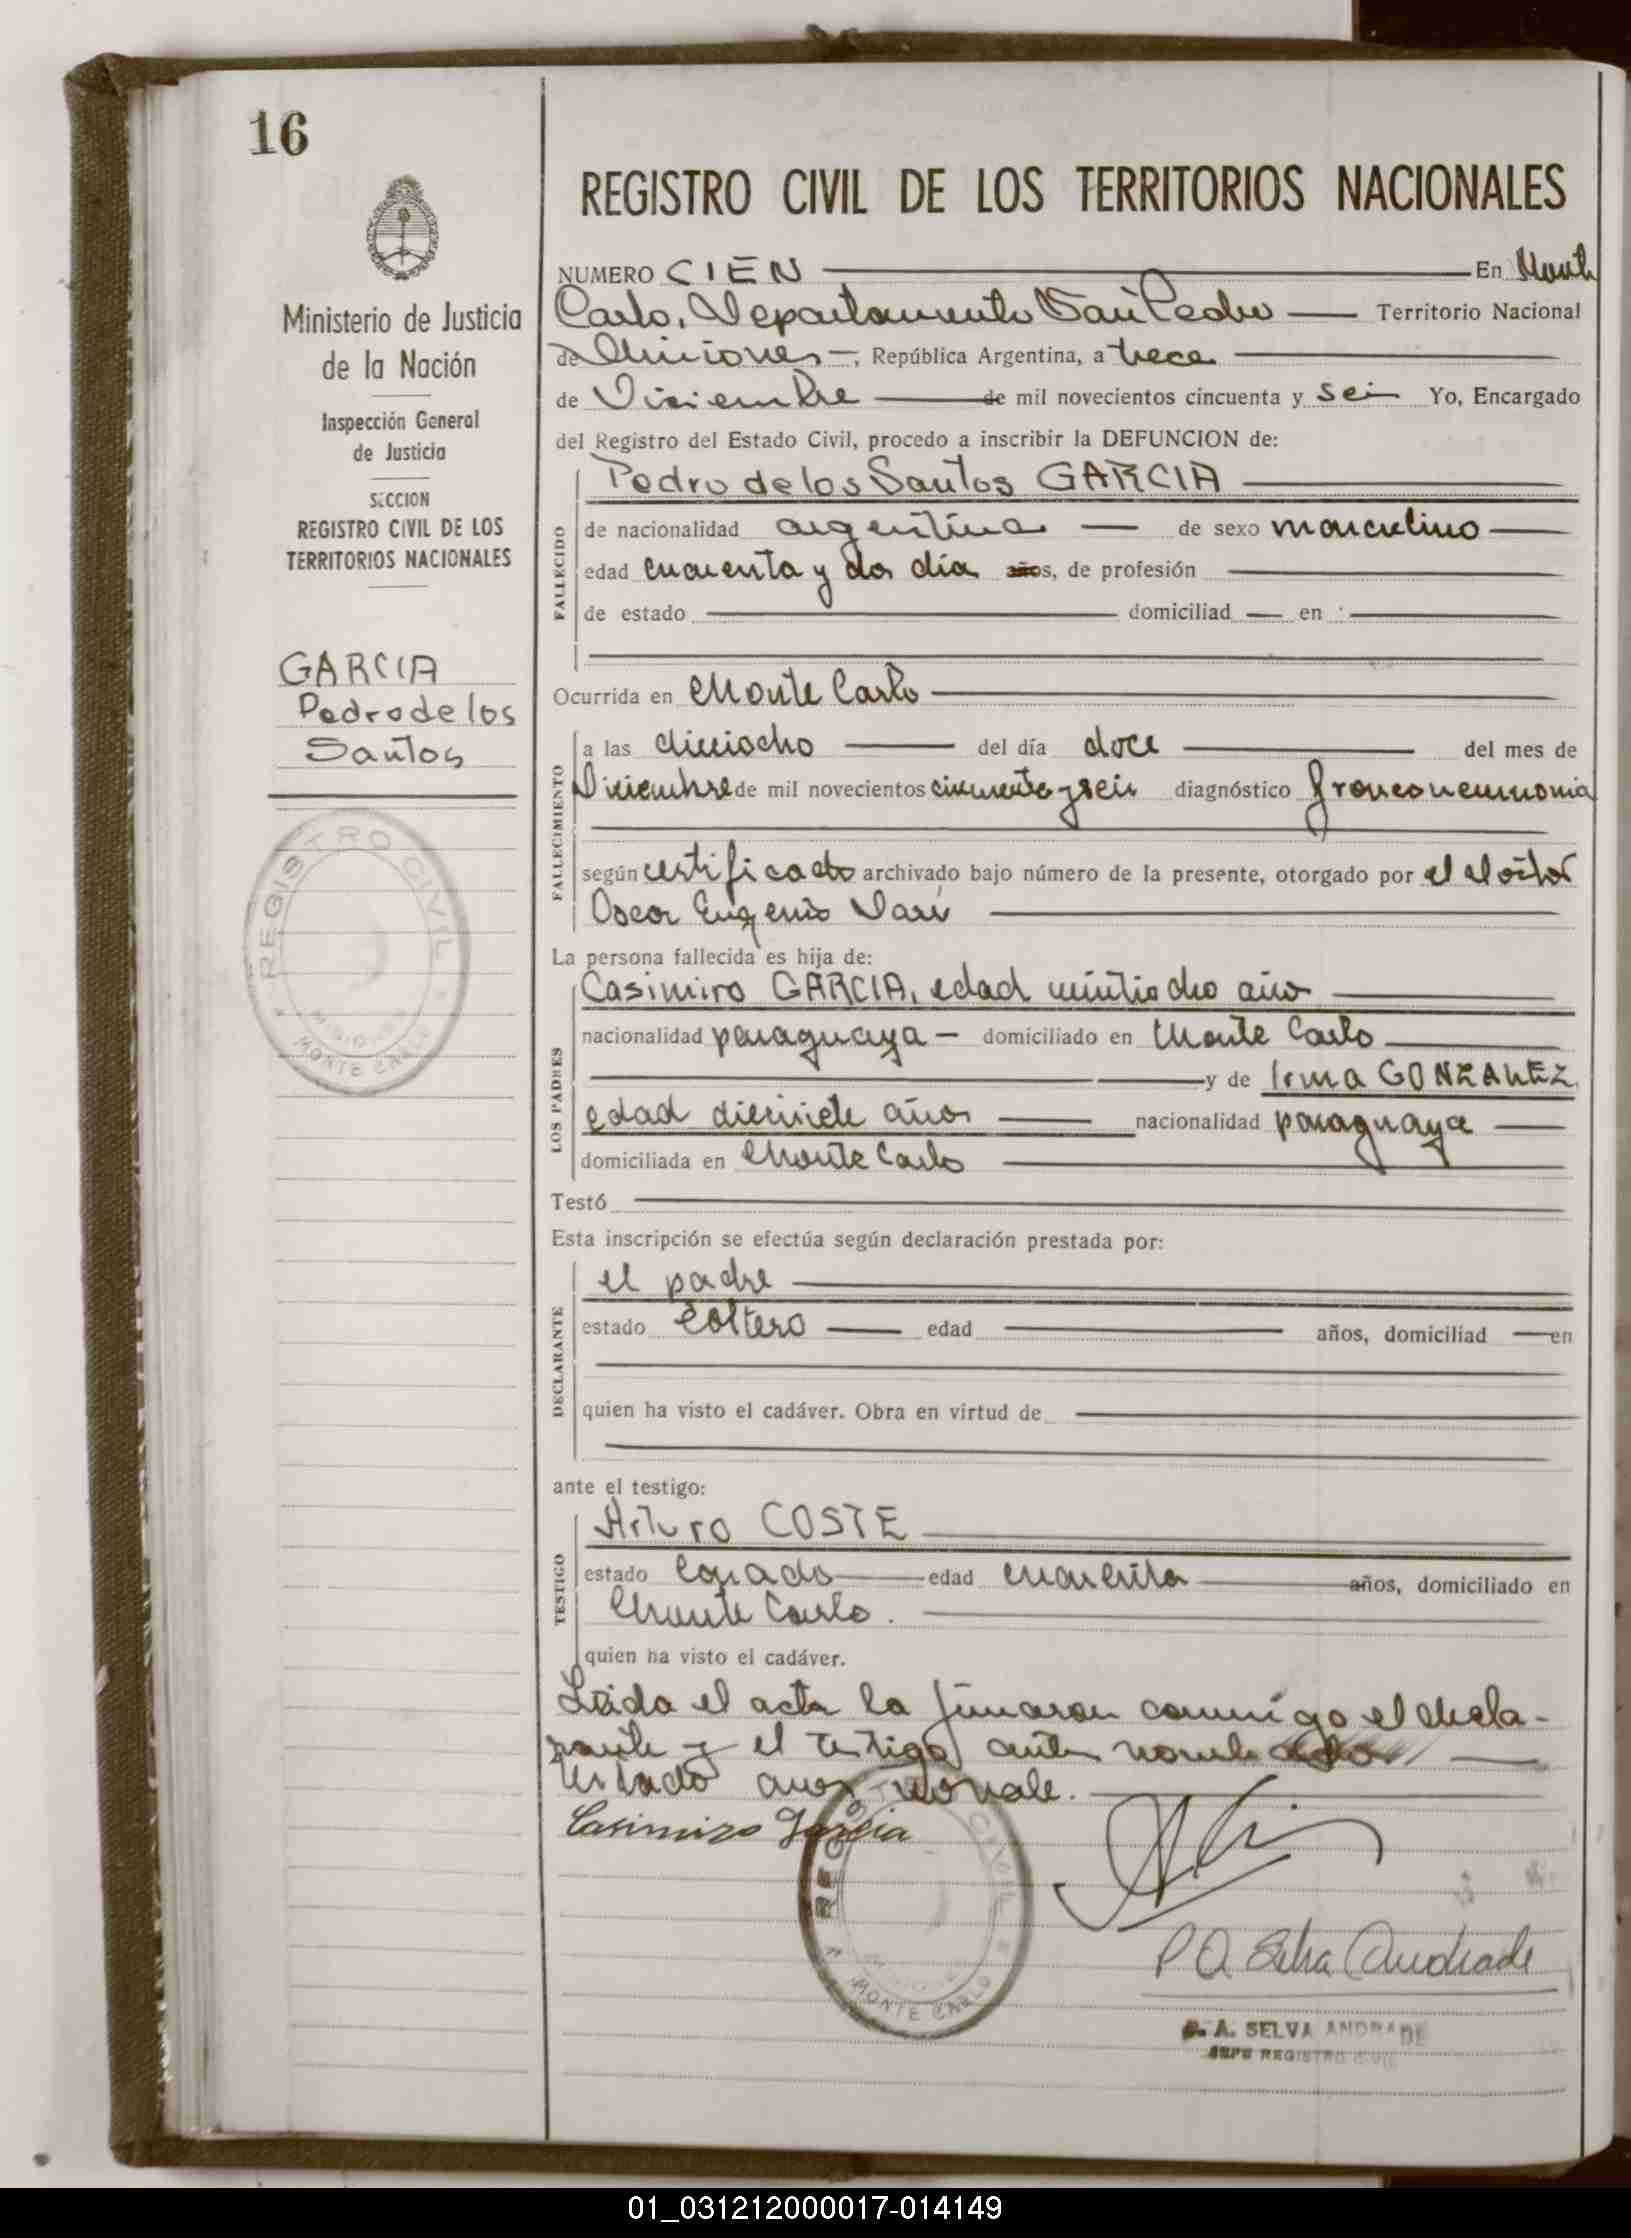 16
REGISTRO CIVIL DE LOS TERRITORIOS NACIONALES
Ministerio de Justicia
de la Nación
Inspección General
de Justicia
SECCION
REGISTRO CIVIL DE LOS
TERRITORIOS NACIONALES
GARCIA
Pedro de los
Santos
REGISTRO CIVIL
MISIONES
MONTE CARLO
NUMERO CIEN En Monte
Carlo, Departamento San Pedro Territorio Nacional
de Misiones, República Argentina, a trece
de Diciembre de mil novecientos cincuenta y seis Yo, Encargado
del Registro del Estado Civil, procedo a inscribir la DEFUNCION de:
FALLECIDO
Pedro de los Santos GARCIA
de nacionalidad argentina de sexo masculino
edad cuarenta y dos días años, de profesión
de estado domiciliad en
Ocurrida en Monte Carlo
FALLECIMIENTO
a las dieciocho del día doce del mes de
Diciembre de mil novecientos cincuenta y seis diagnóstico bronconeumonia
según certificado archivado bajo número de la presente, otorgado por el doctor
Oscar Eugenio
La persona fallecida es hija de:
LOS PADRES
Casimiro GARCIA, edad veintiocho años
nacionalidad paraguaya domiciliado en Monte Carlo
y de Irma GONZALEZ
edad diecisiete años nacionalidad paraguaya
domiciliada en Monte Carlo
Testó
Esta inscripción se efectúa según declaración prestada por:
DECLARANTE
el padre
estado soltero edad años, domiciliad en
quien ha visto el cadáver. Obra en virtud de
ante el testigo:
TESTIGO
Arturo COSTE
estado casado edad cuarenta años, domiciliado en
Monte Carlo.
quien ha visto el cadáver.
Leida el acta la firmaron conmigo el decla-
rante y el testigo antes nombrados
Testado años no vale.
Casimiro Garcia
REGISTRO CIVIL
MISIONES
MONTE CARLO
P A Selva Andrade
P. A. SELVA ANDRADE
JEFE REGISTRO CIVIL
01_031212000017-014149